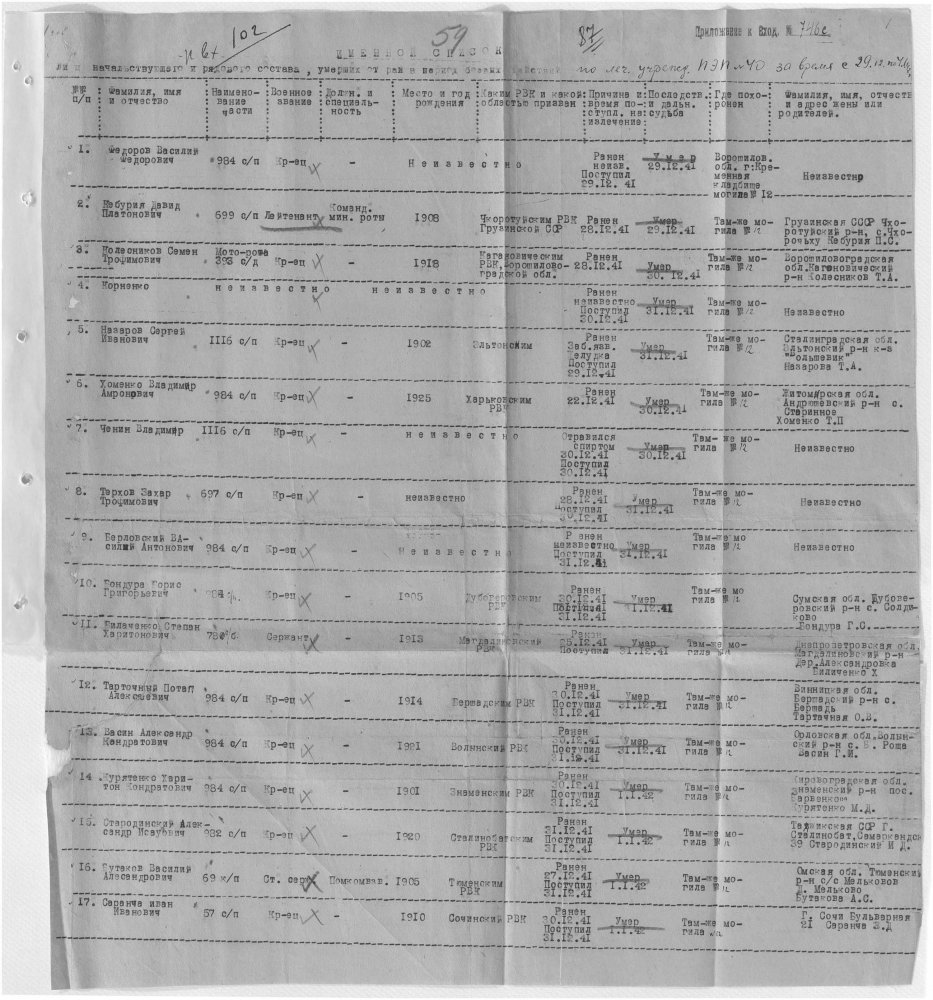 102
59
87
Приложение к Вход. № 746с
ИМЕННОЙ СПИСОК
начальствующего и рядового состава, умерших от ран в период боевых действий по леч. учрежд. ПЭП №70 за время с 29.12.
№№ п/п Фамилия, имя и отчество Наименование части Военное звание Должн. и специальность Место и год рождения Каким РВК и какой областью призван Причина и время поступл. на излечение Последств. и дальн. судьба Где похоронен Фамилия, имя, отчеств и адрес жены или родителей.
1. Федоров Василий Федорович 984 с/п Кр-ец - Неизвестно Ранен неизв. Поступил 29.12.41 Умер 29.12.41 Ворошилов. обл. г.Кременная кладбище могила № 12 Неизвестно
2. Кебурия Давид Платонович 699 с/п Лейтенант Команд. мин. роты 1908 Чхоротуйским РВК Грузинской ССР Ранен 28.12.41 Умер 29.12.41 Там-же могила № 12 Грузинская ССР Чхоротуйский р-н. с.Чхорочьху Кебурия П.С.
3. Колесников Семен Трофимович Мото-рота 393 с/д Кр-ец - 1918 Кагановическим РВК,Ворошиловоградской обл. Ранен 28.12.41 Умер 30.12.41 Там-же могила № 12 Ворошиловоградская обл.Кагановический р-н Колесников Т.А.
4. Корненко неизвестно неизвестно Ранен неизвестно Поступил 30.12.41 Умер 31.12.41 Там-же могила № 12 Неизвестно
5. Назаров Сергей Иванович 1116 с/п Кр-ец - 1902 Эльтонским Ранен Заб.язв. желудка Поступил 29.12.41 Умер 31.12.41 Там-же могила № 12 Сталинградская обл. Эльтонский р-н к-з "Большевик" Назарова Т.А.
6. Хоменко Владимир Амронович 984 с/п Кр-ец - 1925 Харьковским РВК Ранен 22.12.41 Умер 30.12.41 Там-же могила № 12 Житомирская обл. Андрюшевский р-н с. Старинное Хоменко Т.П
7. Ченин Владимир 1116 с/п Кр-ец - неизвестно Отравился спиртом 30.12.41 Поступил 30.12.41 Умер 30.12.41 Там-же могила № 12 Неизвестно
8. Терхов Захар Трофимович 697 с/п Кр-ец - неизвестно Ранен 28.12.41 Поступил 30.12.41 Умер 31.12.41 Там-же могила № 12 Неизвестно
9. Берловский Василий Антонович 984 с/п Кр-ец - Неизвестно Ранен неизвестно Поступил 31.12.41 Умер 31.12.41 Там-же могила № 12 Неизвестно
10. Бондура Борис Григорьевич 984 Кр-ец - 1905 РВК Ранен 30.12.41 Поступил 31.12.41 Умер 31.12.41 Там-же могила № 12 Сумская обл. Дубоверовский р-н с. Солдиково Бондура Г.С.
11. Биличенко Степан Харитонович Сержант - 1913 Магдалиновский РВК Ранен 25.12.41 Поступил Умер 31.12.41 Там-же могила Днепропетровская обл. Магдалиновский р-н Дер.Александровка Биличенко Х
12. Тарточный Потап Алексеевич 984 с/п Кр-ец - 1914 Бершадским РВК Ранен 30.12.41 Поступил 31.12.41 Умер 31.12.41 Там-же могила № 12 Винницкая обл. Бершадский р-н с. Бершадь Тартачная О.В.
13. Васин Александр Кондратович 984 с/п Кр-ец - 1921 Волынский РВК Ранен 30.12.41 Поступил 31.12.41 Умер 31.12.41 Там-же могила № 12 Орловская обл.Волынский р-н с. В. Роща Васин Г.И.
14 Курятенко Харитон Кондратович 984 с/п Кр-ец - 1901 Знаменским РВК Ранен 30.12.41 Поступил 31.12.41 Умер 1.1.42 Там-же могила № 12 Кировоградская обл. Знаменский р-н пос. Курятенко М.Д.
15. Стародинский Александр Исаувич 982 с/п Кр-ец - 1920 Сталинобатским РВК Ранен 31.12.41 Поступил 31.12.41 Умер 1.1.42 Там-же могила № 12 Таджикская ССР Г. Сталинобат,Самеркандск 39 Стародинский И Д.
16. Бутаков Василий Алесандрович 69 к/п Ст. серж Помкомвзв. 1905 Тюменским РВК Ранен 27.12.41 Поступил 31.12.41 Умер 1.1.42 Там-же могила № 12 Омская обл. Тюменский р-н с/с Мельковов Д. Мельково Бутакова А.С.
17. Саранча иван Иванович 57 с/п Кр-ец - 1910 Сочинский РВК Ранен 30.12.41 Поступил 31.12.41 Умер 1.1.42 Там-же могила Г. Сочи Бульварная 21 Саранча Е.Д